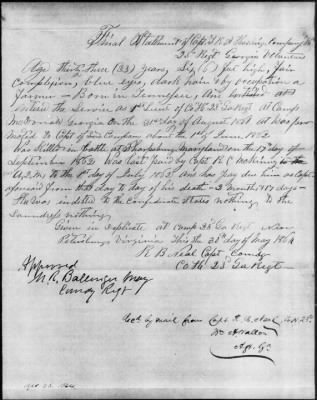 Final Statement of Capt of Company "K"
28" Regt Georgia Volunteers
Age thirty three (33) years, Six (6) feet high, fair
Complexion, blue eyes, dark hair by occupation a
farmer — Born in Tennessee, was enlisted at
entered the Service as 1st Lieut of Co K 28 Ga Regt at Camp
McDonald Georgia on the day of August 1861 at was pro
moted to Capt of said Company about the June 1862
Was Killed in battle at Sharpsburg Maryland on the 17th day of
September 1862 Was last paid by Capt R C
to the 1st day of July 1862, and has pay due him as Capt
aforesaid from that day to day of his death — 2 months & 17 days —
He was indebted to the Confederate States nothing to the
Laundress nothing
Given in Duplicate at Camp 28 Ga Regt near
Petersburg Virginia this the 23d day of May 1864
R B Neal Capt, Comdg
Co "K" 28" Ga Regt
Approved
Ballenger
Comdg Regt
Recd by mail from Capt R B Neal